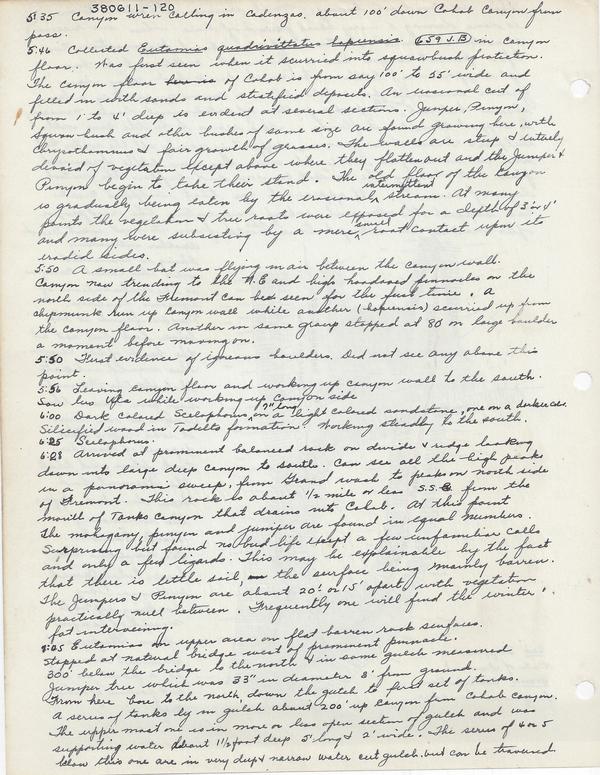 380611-120
5:35 Canyon wren calling in Cadenzas. about 100' down Cohab Canyon from
pass.
5:46 Collected Eutamias quadrivittatus hopiensis (659 J.B) in canyon
floor. Was first seen when it scurried into squawbush protection.
The canyon floor here is of Cohab is from say 100' to 55' wide and
filled in with sands and stratified deposits. An erosional cut of
from 1' to 4' deep is evident at several sections. Juniper, Pinyon,
Squaw bush and other bushes of same size are found growing here, with
Chrysothamnus & fair growth of grasses. The walls are steep & entirely
devoid of vegetation except above where they flatten out and the Juniper &
Pinyon begin to take their stand. The old floor of the Canyon
is gradually being eaten by the erosional intermittent stream. At many
points the vegetation & tree roots were exposed for a depth of 3' or 4'
and many were subsisting by a mere small root contact upon its
eroded sides.
5:50 A small bat was flying in air between the canyon wall.
Canyon now trending to the N.E and high pinnacles on the
north side of the Fremont can be seen for the first time. A
chipmunk run up canyon wall while another (hopiensis) scurried up from
the canyon floor. Another in same group stopped at 80 on large boulder
a moment before moving on.
5:50 First evidence of igneous boulders. Did not see any above this
point.
5:56 Leaving canyon floor and working up canyon wall to the south.
Saw two Uta while working up canyon side
6:00 Dark colored Sceloporus 7" long on a light colored sandstone, one on a darker color.
Silicified wood in Todilto formation. Working steadily to the south.
6:25 Sceloporus.
6:28 Arrived at prominent balanced rock on divide & ridge looking
down into large deep canyon to south. Can see all the high peaks
in a panoramic sweep, from Grand wash to peaks on north side
of Fremont. This rock is about 1/2 mile or less S.S.E from the
mouth of Tanks Canyon that drains into Cohab. At this point
The mahogany, pinyon and juniper are found in equal numbers.
Surprising but found no bird life except a few unfamiliar calls
and only a few lizards. This may be explainable by the fact
that there is little soil, the surface being mainly barren.
The Junipers & Pinyon are about 20' or 15' apart, with vegetation
practically null between. Frequently one will find the
fat intervening.
7:05 Eutamias on upper area on flat barren rock surfaces.
Stopped at natural bridge west of prominent pinnacle.
300' below the bridge to the north & in same gulch measured
Juniper tree which was 33" in diameter 3' from ground.
From here bore to the north, down the gulch to first set of tanks.
A series of tanks lay in gulch about 200' up canyon from Cohab Canyon.
The upper most one is in more or less open section of gulch and was
supporting water about 1 1/2 foot deep 5' long & 2' wide. The series of 4 or 5
below this one are in very deep & narrow water cut gulch. but can be traversed